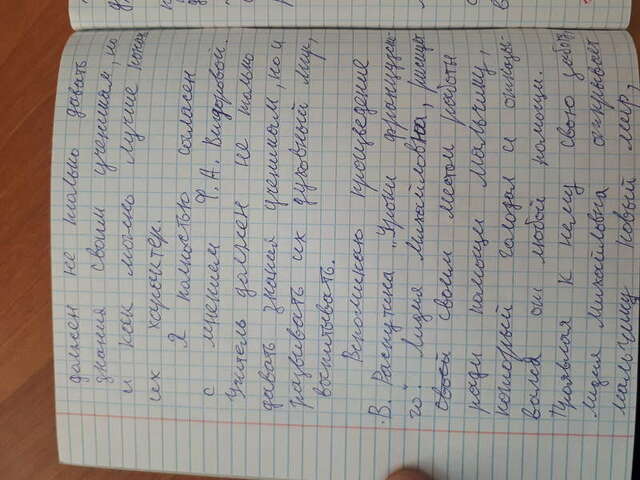 должен не только давать
знания своим ученикам, но
и как можно лучше
их характер.
Я полностью согласен
с мнением Ф. А. Вигдоровой.
Учитель должен не только
давать знания ученикам, но и
развивать их духовный мир,
воспитывать.
Вспоминаю произведение
В. Распутина "Уроки французско-
го". Лидия Михайловна, рискуя
своим местом работы
ради помощи мальчику,
который голодал и отказы-
вался от любой помощи.
Проявляя к нему свою заботу,
Лидия Михайловна открывает
мальчику новый мир,